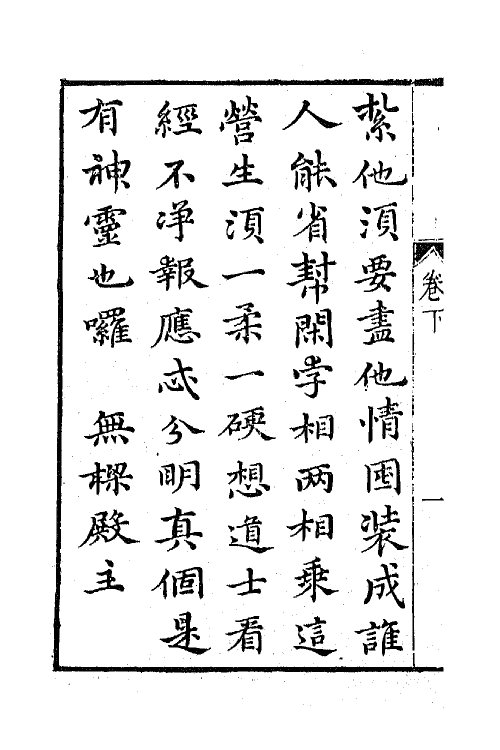 紮他湏要盡他情圈装成誰
人能省幫閑字相两相乗這
營生湏一柔一硬想道士看
經不浄報應忒分明真個是
有神靈也囉　無樑殿主
卷下
一